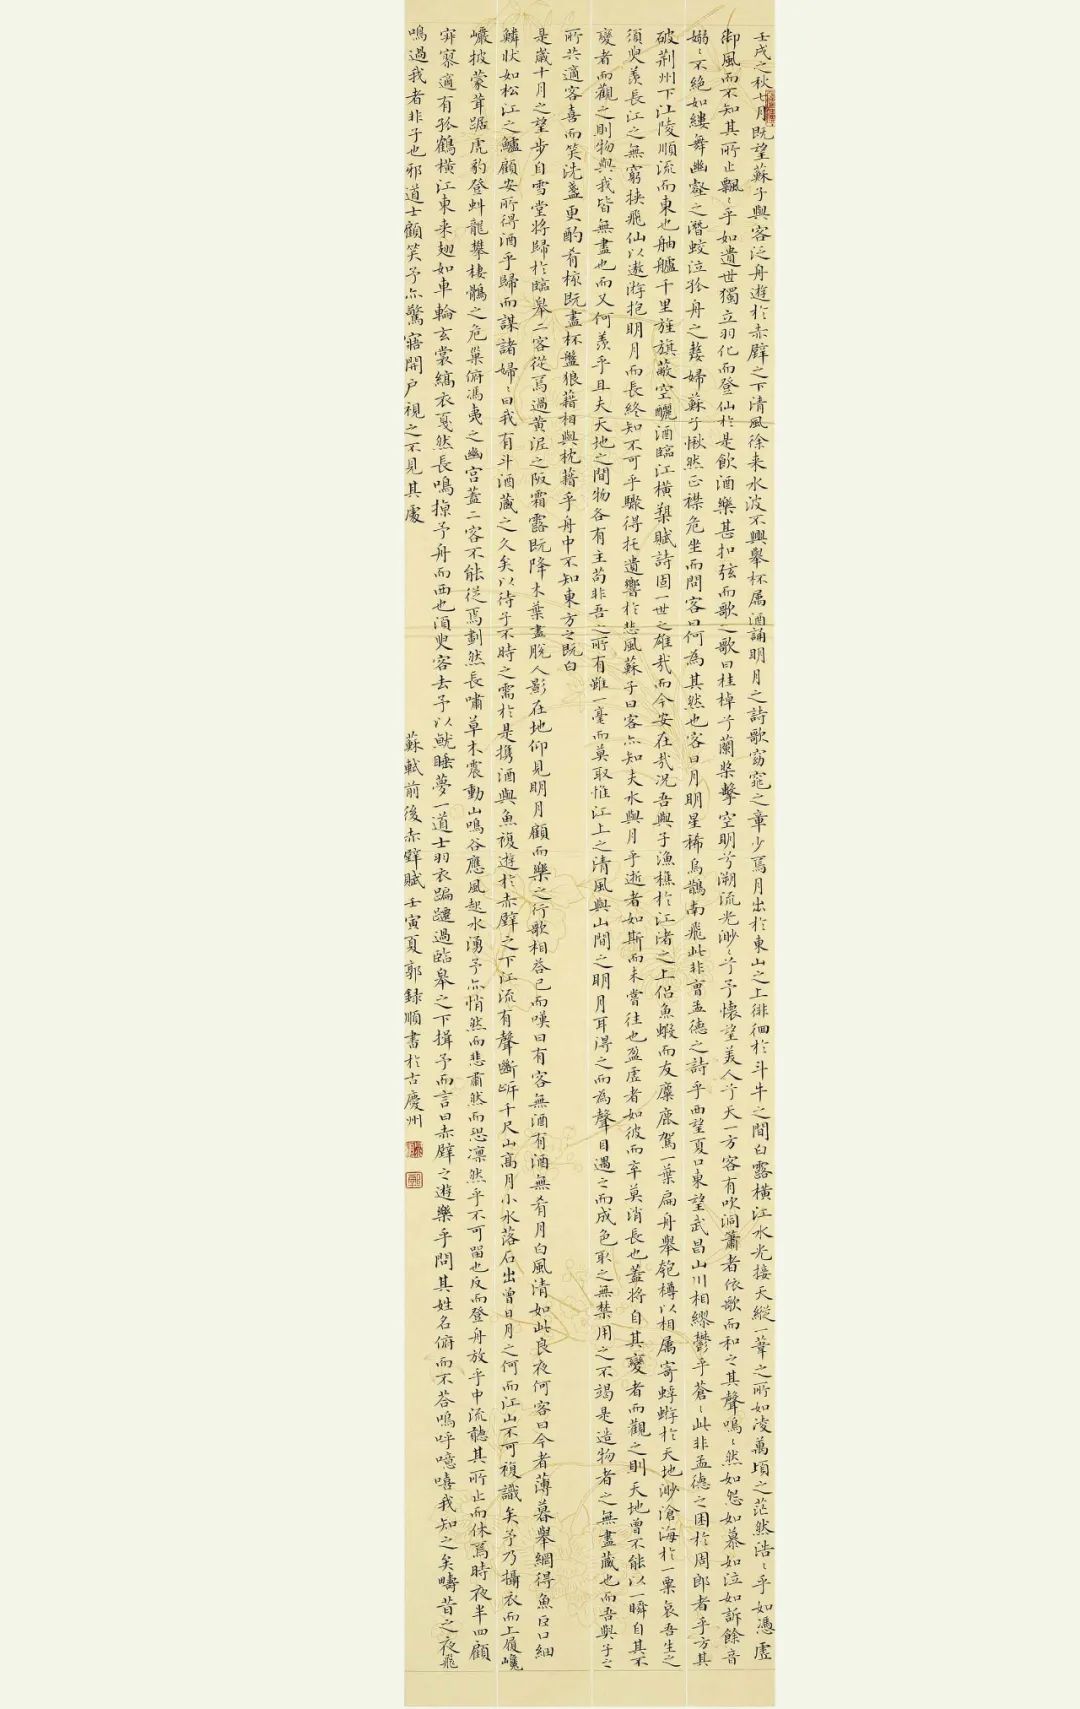 壬戌之秋七月既望蘇子與客泛舟遊於赤壁之下清風徐来水波不興舉杯属酒誦明月之詩歌窈窕之章少焉月出於東山之上徘徊於斗牛之間白露橫江水光接天縱一葦之所如凌萬頃之茫然浩〻乎如馮虛
御風而不知其所止飄〻乎如遺世獨立羽化而登仙於是飲酒樂甚扣弦而歌〻之歌曰桂棹兮蘭槳擊空明兮溯流光渺〻兮予懷望美人兮天一方客有吹洞簫者依歌而和之其聲嗚〻然如怨如慕如泣如訴餘音
嫋〻不絕如縷舞幽壑之潛蛟泣孤舟之嫠婦蘇子愀然正襟危坐而問客曰何為其然也客曰月明星稀烏鵲南飛此非曹孟德之詩乎西望夏口東望武昌山川相繆鬱乎蒼〻此非孟德之困於周郎者乎方其
破荊州下江陵順流而東也舳艫千里旌旗蔽空釃酒臨江橫槊賦詩固一世之雄哉而今安在哉况吾與子漁樵於江渚之上侶魚蝦而友麋鹿駕一葉扁舟舉匏樽以相属寄蜉蝣於天地渺滄海於一粟哀吾生之
須臾羨長江之無窮挾飛仙以遨遊抱明月而長終知不可乎驟得托遺響於悲風蘇子曰客亦知夫水與月乎逝者如斯而未嘗往也盈虛者如彼而卒莫消長也蓋將自其變者而觀之則天地曾不能以一瞬自其不
變者而觀之則物與我皆無盡也而又何羨乎且夫天地之間物各有主苟非吾之所有雖一毫而莫取惟江上之清風與山間之明月耳得之而為聲目遇之而成色取之無禁用之不竭是造物者之無盡藏也而吾與子之
所共適客喜而笑洗盞更酌肴核既盡杯盤狼藉相與枕藉乎舟中不知東方之既白
是歲十月之望步自雪堂將歸於臨皋二客從焉過黃泥之阪霜露既降木葉盡脫人影在地仰見明月顧而樂之行歌相答已而嘆曰有客無酒有酒無肴月白風清如此良夜何客曰今者薄暮舉網得魚巨口細
鱗状如松江之鱸顧安所得酒乎歸而謀諸婦〻曰我有斗酒藏之久矣以待子不時之需於是携酒與魚複遊於赤壁之下江流有聲斷岸千尺山高月小水落石出曾日月之何而江山不可複識矣予乃攝衣而上履巉
巖披蒙茸踞虎豹登虯龍攀棲鶻之危巢俯馮夷之幽宮蓋二客不能從焉劃然長嘯草木震動山鳴谷應風起水湧予亦悄然而悲肅然而恐凜然乎不可留也反而登舟放乎中流聽其所止而休焉時夜半四顧
寂寥適有孤鶴橫江東来翅如車輪玄裳縞衣戛然長鳴掠予舟而西也須臾客去予以就睡夢一道士羽衣蹁躚過臨皋之下揖予而言曰赤壁之遊樂乎問其姓名俯而不答嗚呼噫嘻我知之矣疇昔之夜飛
鳴過我者非子也邪道士顧笑予亦驚寤開户視之不見其處
蘇軾前後赤壁賦壬寅夏郭録順書於古慶州